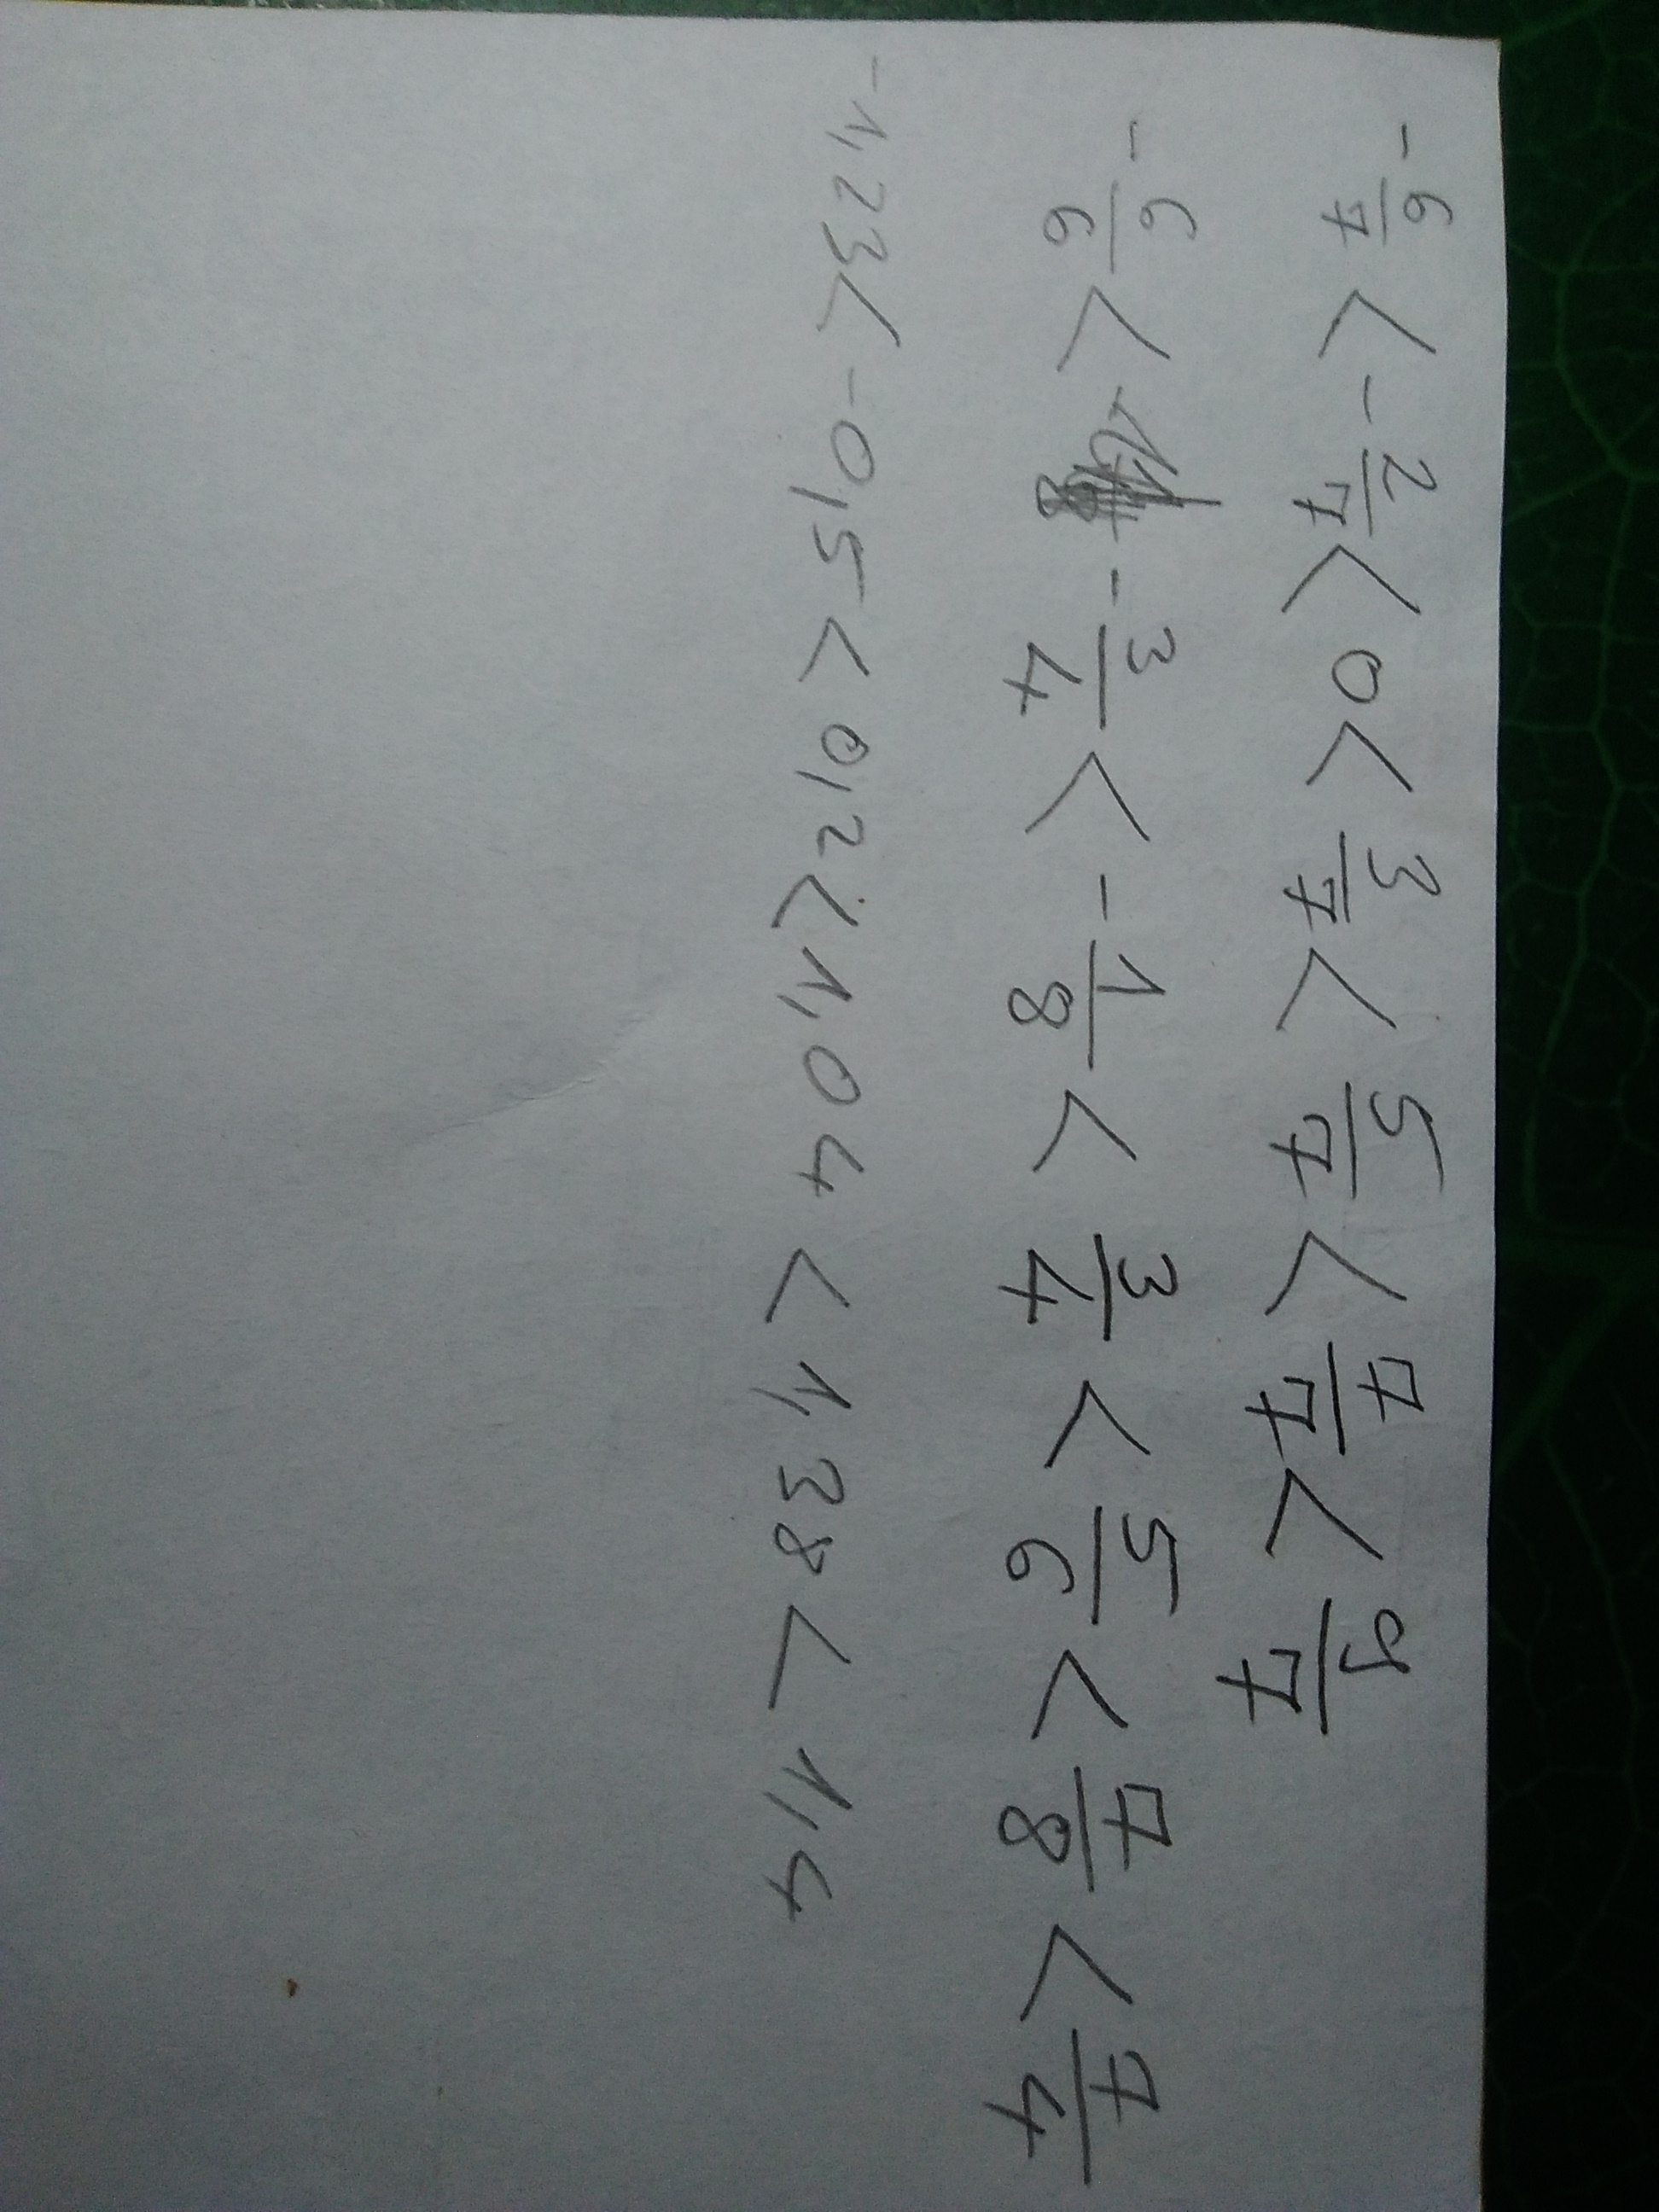 -6/7 < -2/7 < 0 < 3/7 < 5/7 < 7/7 < 9/7
-6/6 < -3/4 < -1/8 < 3/4 < 5/6 < 7/8 < 7/4
-1,23 < -0,5 < 0,2 < 1,04 < 1,38 < 1,4